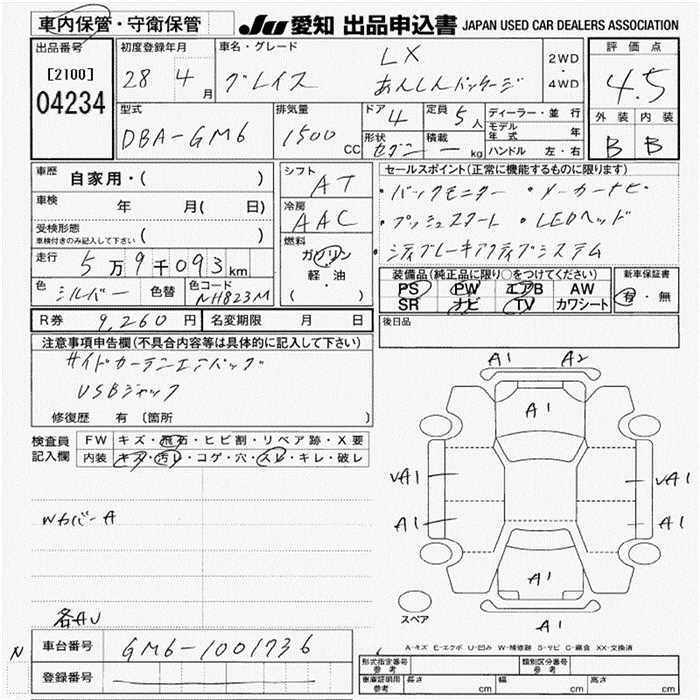 車内保管・守衛保管
JU 愛知 出品申込書 JAPAN USED CAR DEALERS ASSOCIATION
出品番号
[2100]
04234
初度登録年月
28 4月
車名・グレード
グレイス LX
あんしんパッケージ
2WD
・
4WD
評価点
4.5
外装 内装
B B
型式
DBA-GM6
排気量
1500 CC
ドア 4
定員 5人
形状 セダン
積載 ー kg
ディーラー・並行
モデル年式 年
ハンドル 左・右
車歴 自家用・( )
車検 年 月( 日)
受検形態
車検付きのみ記入して下さい ( )
走行 5万9千093km
色 シルバー 色替 色コード NH823M
シフト
AT
冷房
AAC
燃料
ガソリン
軽・油
( ・ )
セールスポイント(正常に機能するものに限ります)
・バックモニター ・メーカーナビ
・プッシュスタート ・LEDヘッド
・シティブレーキアクティブシステム
装備品(純正品に限り○をつけてください)
PS PW エアB AW
SR ナビ TV カワシート
新車保証書
有・無
R券 9,260円 名変期限 月 日
後日品
注意事項申告欄(不具合内容等は具体的に記入して下さい)
サイドカーテンエアバッグ
USBジャック
修復歴 有 〔箇所 〕
検査員記入欄
FW キズ・飛石・ヒビ割・リペア跡・X要
内装 キズ・汚レ・コゲ・穴・スレ・キレ・破レ
Wカバー A
各AU
A1 A2
A1
UA1 UA1
A1 A1
A1
A1
スペア
A-キズ E-エクボ U-凹み W-補修跡 S-サビ C-腐食 XX-交換済
N
車台番号 GM6-1001736
登録番号
型式指定番号 参考
類別区分番号 参考
車庫証明用 参考 長さ cm 幅 cm 高さ cm